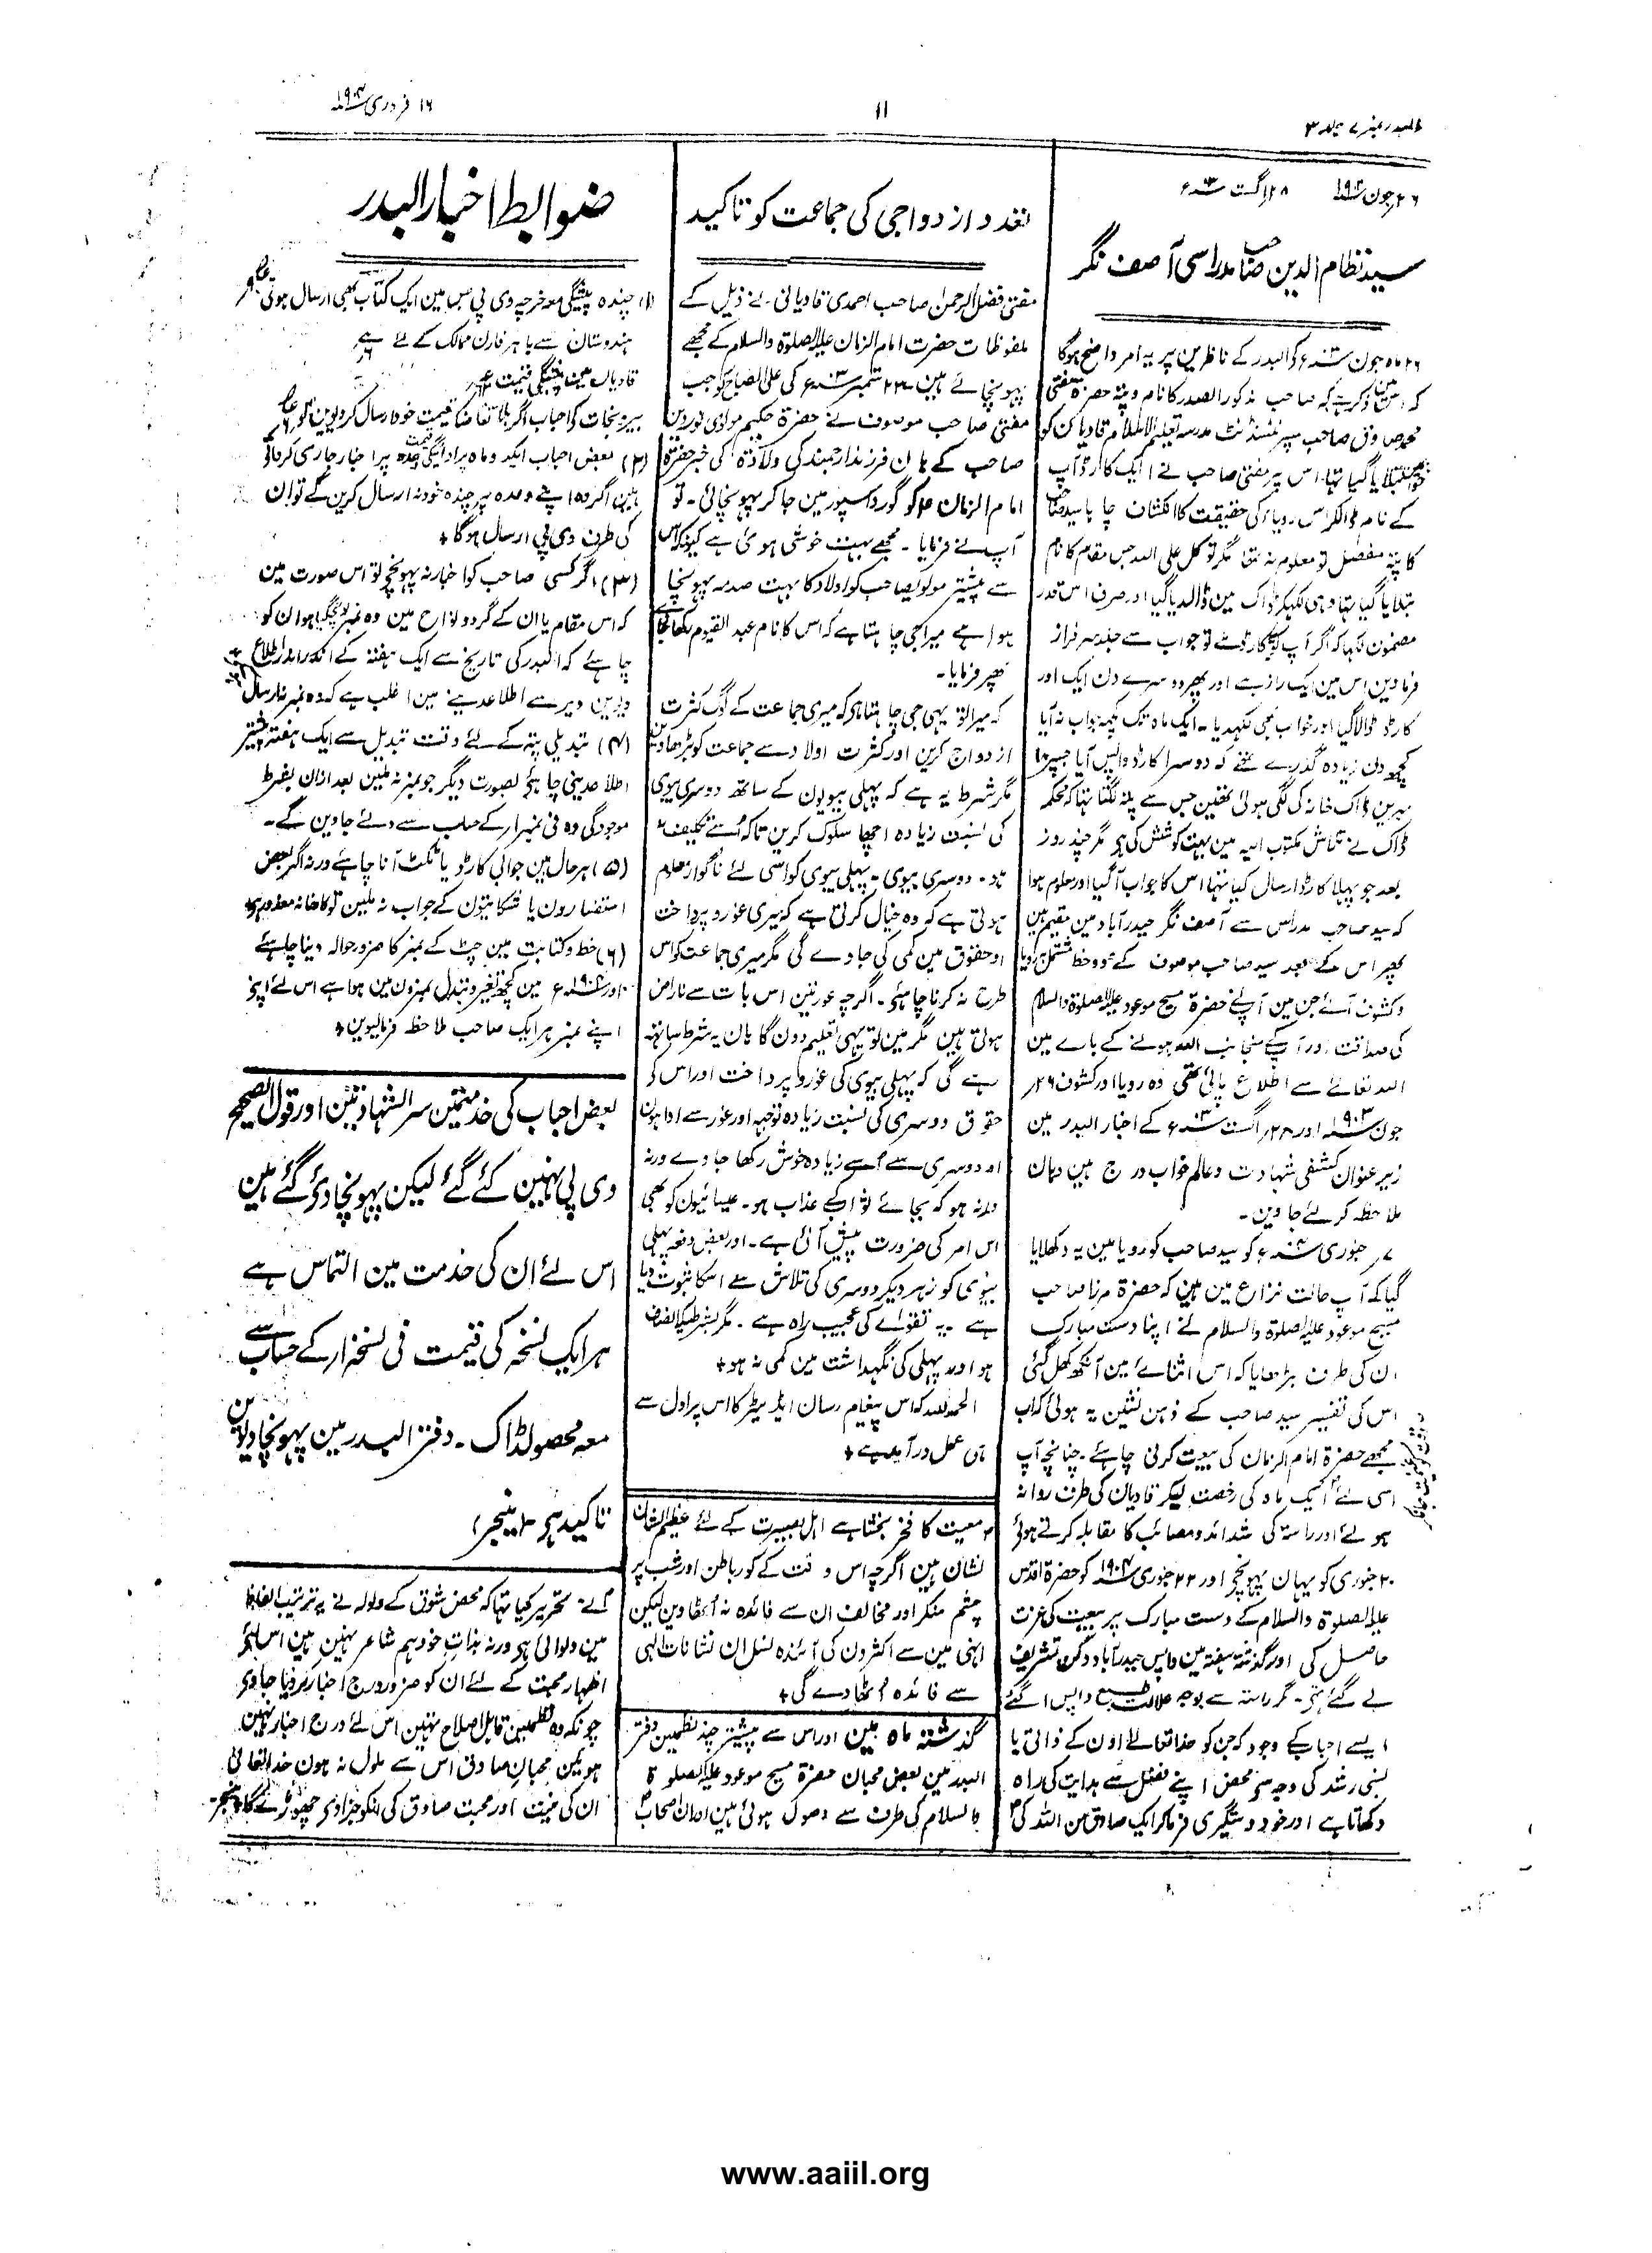 البدر نمبر ۷ جلد ۳
۱۱
۱۶ فروری ۱۹۰۴
۲۶ جون ۱۹۰۳ ۲۸ اگست ۰۳ء
سید نظام الدین صاحب مدراسی آصف نگر
۲۶ ماہ جون ۰۳ء کو البدر کے ناظرین پر یہ امر واضح ہوگا
کہ اس میں ذکر ہے کہ صاحب مذکور الصدر کا نام و پتہ حضرۃ مفتی
محمد صادق صاحب سپرنٹنڈنٹ مدرسہ تعلیم الاسلام قادیان کو
خواب میں بتلایا گیا تہا اس پر مفتی صاحب نے ایک کارڈ آپ
کے نام ڈالکر اس رویا کی حقیقت کا انکشاف چاہا سید صاحب
کا پتہ مفصل تو معلوم نہ تھا مگر تو کل علی اللہ جس مقام کا نام
بتلایا گیا تہا وہی لکہیکر ڈاک مین ڈالدیا گیا اور صرف اس قدر
مضمون لکہا کہ اگر آپ کو یہ کارڈ ملے تو جواب سے جلد سرفراز
فرمادین اس مین ایک راز ہے اور پھر دوسرے دن ایک اور
کارڈ ڈالا گیا اور خواب بھی لکہدیا ۔ ایک ماہ تک کچہہ جواب نہ آیا
کچھ دن زیادہ گذرے تھے کہ دوسرا کارڈ واپس آیا جسپر ۱۰
مہرین ڈاک خانہ کی لگی ہوئی تھین جس سے پتہ لگتا تہا کہ محکمہ
ڈاک نے تلاش مکتوب الیہ مین بہت کوشش کی ہی مگر چند روز
بعد جو پہلا کارڈ ارسال کیا تہا اس کا جواب آگیا اور معلوم ہوا
کہ سید صاحب مدراس سے آصف نگر حیدرآباد مین مقیم ہین
پھر اس کے بعد سید صاحب موصوف کے دو خط مشتمل بر رویا
وکشوف آئے جن مین آپ نے حضرۃ مسیح موعود علیہ الصلوۃ والسلام
کی صداقت اور آپ کے منجانب اللہ ہونے کے بارے مین
اللہ تعالے سے اطلاع پائی تھی وہ رویا اور کشوف ۲۶ر
جون ۱۹۰۳ اور ۲۸ر اگست ۰۳ء کے اخبار البدر مین
زیر عنوان کشفی شہادت و عالم خواب درج ہین وہان
ملاحظہ کر لئے جاوین ۔
۷ر جنوری ۰۴ء کو سید صاحب کو رویا مین یہ دکھلایا
گیا کہ آپ حالت نزاع مین ہین کہ حضرۃ مرزا صاحب
مسیح موعود علیہ الصلوۃ والسلام نے اپنا دست مبارک
ان کی طرف بڑھایا کہ اس اثنا مین آنکھ کھل گئی
اس کی تفسیر سید صاحب کے ذہن نشین یہ ہوئی کہ اب
مجھے حضرۃ امام الزمان کی بیعت کرنی چاہئے ۔ چنانچہ آپ
اسی لئے ایک ماہ کی رخصت لیکر قادیان کی طرف روانہ
ہوئے اور راستہ کی شدائد و مصائب کا مقابلہ کرتے ہوئے
۲۰ جنوری کو یہان پہونچے اور ۲۲ جنوری ۱۹۰۴ کو حضرۃ اقدس
علیہ الصلوۃ والسلام کے دست مبارک پر بیعت کی عزت
حاصل کی اور گذشتہ ہفتہ مین واپس حیدرآباد دکن تشریف
لے گئے تہے ۔ مگر راستہ سے بوجہ علالت طبع واپس آ گئے
ایسے احباب کے وجود کہ جن کو خدا تعالے اون کے ذاتی یا
نسبی رشد کی وجہ سے محض اپنے فضل سے ہدایت کی راہ
دکھاتا ہے اور خود دستگیری فرما کر ایک صادق من اللہ کی
تعدد ازدواجی کی جماعت کو تاکید
مفتی فضل الرحمن صاحب احمدی قادیانی نے ذیل کے
ملفوظات حضرت امام الزمان علیہ الصلوۃ والسلام کے مجھے
پہونچائے ہین ۔ ۲۳ ستمبر ۰۳ء کی علی الصباح کو جب
مفتی صاحب موصوف نے حضرۃ حکیم مولوی نور دین
صاحب کے ہان فرزند ارجمند کی ولادۃ کی خبر حضرۃ
امام الزمان ع کو گورداسپور مین جا کر پہونچائی ۔ تو
آپ نے فرمایا ۔ مجھے بہت خوشی ہوئی ہے کیونکہ اس
سے پیشتر مولویصاحب کو اولاد کا بہت صدمہ پہونچا
ہوا ہے میرا جی چاہتا ہے کہ اس کا نام عبد القیوم رکھا جائے
پھر فرمایا ۔
کہ میرا تو یہی جی چاہتا ہی کہ میری جماعت کے لوگ کثرت
ازدواج کرین اور کثرت اولاد سے جماعت کو بڑھاوین
مگر شرط یہ ہے کہ پہلی بیویون کے ساتھ دوسری بیوی
کی نسبت زیادہ اچھا سلوک کرین تاکہ اُسے تکلیف نہ
ہو ۔ دوسری بیوی ۔ پہلی بیوی کو اسی لئے ناگوار معلوم
ہوتی ہے کہ وہ خیال کرتی ہے کہ میری غور و پرداخت
اور حقوق مین کمی کی جاوے گی مگر میری جماعت کو اس
طرح نہ کرنا چاہئے ۔ اگرچہ عورتین اس بات سے ناراض
ہوتی ہین مگر مین تو یہی تعلیم دون گا ہان یہ شرط ساتہہ
رہے گی کہ پہلی بیوی کی غور و پرداخت اور اس کے
حقوق دوسری کی نسبت زیادہ توجہ اور غور سے ادا ہون
اور دوسری سے اُسے زیادہ خوش رکھا جاوے ورنہ
یہ نہ ہو کہ بجائے ثواب کے عذاب ہو ۔ عیسائیون کو بھی
اس امر کی ضرورت پیش آئی ہے ۔ اور بعض دفعہ پہلی
بیوی کو زہر دیکر دوسری کی تلاش سے اسکا ثبوت دیا
ہے یہ تقوے کی عجیب راہ ہے ۔ مگر بشرطیکہ انصاف
ہو اور پہلی کی نگہداشت مین کمی نہ ہو ۔
الحمد للہ کہ اس پیغام رسان ایڈیٹر کا اس پر اول سے
ہی عمل درآمد ہے ۔
معیت کا فخر بخشتا ہے اہل بصیرت کے لئے عظیم الشان
نشان ہین اگرچہ اس وقت کے کور باطن اور شب پر
چشم منکر اور مخالف ان سے فائدہ نہ اُٹھاوین لیکن
انہی مین سے اکثرون کی آئندہ نسل ان نشانات الہی
سے فائدہ اُٹھاوے گی ۔
گذشتہ ماہ مین اور اس سے پیشتر چند نظمین دفتر
البدر مین بعض محبان حضرۃ مسیح موعود علیہ الصلوۃ
والسلام کی طرف سے وصول ہوئی ہین اور ان اصحاب
ضوابط اخبار البدر
(۱) چندہ پیشگی معہ خرچہ وی پی جس مین ایک کتاب بھی ارسال ہوتی ہے
ہندوستان سے باہر فارن ممالک کے لئے
قادیان مین پیشگی قیمت
بیرونجات کو احباب اگر بلا تقاضا قیمت خود ارسال کر دیوین تو
(۲) بعض احباب ایک دو ماہ پر ادائیگی چندہ پر اخبار جاری کرواتے
ہین اگر وہ اپنے وعدہ پر چندہ خود نہ ارسال کرین گے تو ان
کی طرف وی پی ارسال ہوگا ۔
(۳) اگر کسی صاحب کو اخبار نہ پہونچے تو اس صورت مین
کہ اس مقام یا ان کے گرد و نواح مین وہ نمبر پہونچ گیا ہو ان کو
چاہئے کہ البدر کی تاریخ سے ایک ہفتہ کے اندر اندر اطلاع
دیوین دیر سے اطلاع دینے مین اغلب ہے کہ وہ نمبر نہ ارسال
(۴) تبدیلی پتہ کے لئے وقت تبدیل سے ایک ہفتہ پیشتر
اطلاع دینی چاہئے بصورت دیگر جو نمبر نہ ملین بعد ازان بشرط
موجودگی وہ فی نمبر ار کے حساب سے دئے جاوین گے ۔
(۵) ہر حال مین جوابی کارڈ یا ٹکٹ آنا چاہئے ورنہ اگر بعض
استفسارون یا شکایتون کے جواب نہ ملین تو کارخانہ معذور ہی
(۶) خط و کتابت مین چٹ کے نمبر کا ضرور حوالہ دینا چاہئے
اور ۱۹۰۴ء مین کچھ تغیر و تبدل نمبرون مین ہوا ہے اس لئے اپنے
اپنے نمبر ہر ایک صاحب ملاحظہ فرمالیوین ۔
بعض احباب کی خدمتین سر الشہادتین اور قول الصحیح
وی پی نہین کئے گئے لیکن پہونچا دئے گئے ہین
اس لئے ان کی خدمت مین التماس ہے
ہر ایک نسخہ کی قیمت فی نسخہ ار کے حساب سے
معہ محصولڈاک ۔ دفتر البدر مین پہونچا دیوین
تاکید ہی ۔ (مینجر)
نے تحریر کیا تہا کہ محض شوق کے ولولہ نے یہ ترتیب الفاظ
مین دلوائی ہی ورنہ بذات خود ہم شاعر نہین ہین اس لئے
اظہار محبت کے لئے ان کو ضرور درج اخبار کر دیا جاوے
چونکہ وہ نظمین قابل اصلاح تہین اس لئے درج اخبار نہین
ہو سکین محبان صادق اس سے ملول نہ ہون خدا تعالی
ان کی نیت اور محبت صادق کی انکو جزا دی
www.aaiil.org